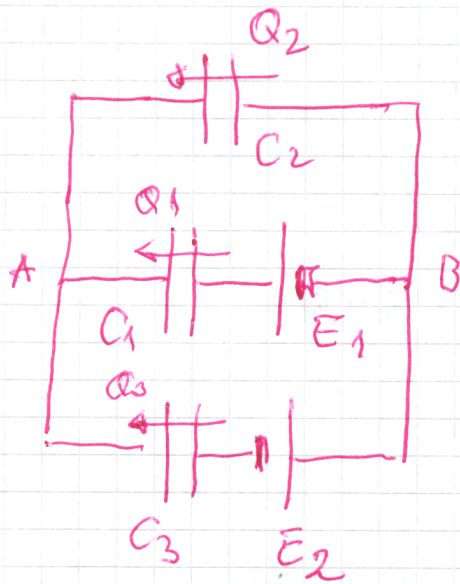 Q2
C2
Q1
A
B
C1
E1
Q3
C3
E2